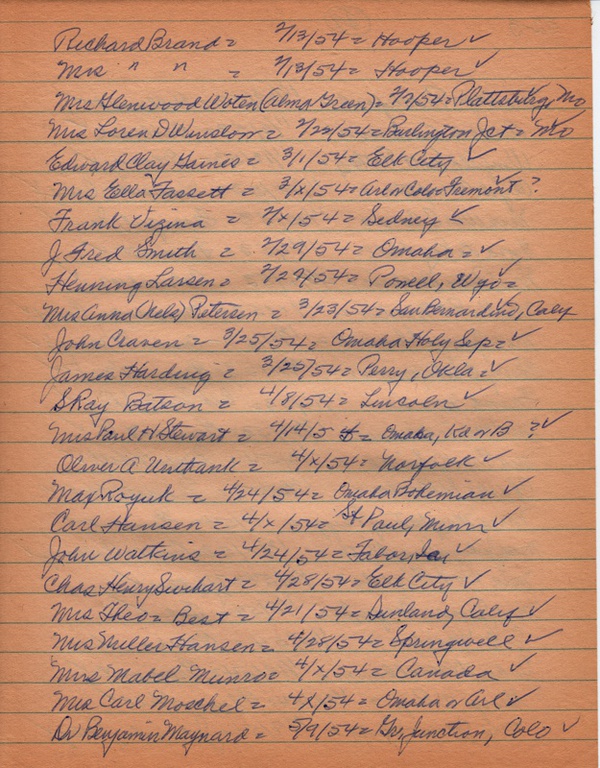 Richard Brand = 2/13/54 = Hooper ✓
Mrs " " = 2/13/54 = Hooper ✓
Mrs Glenwood Woten (Alma Green) = 2/2/54 = Plattsburg, Mo
Mrs Loren D Winslow = 2/22/54 = Burlington Jct = Mo
Edward Clay Gaines = 3/1/54 = Elk City ✓
Mrs Ella Fassett = 3/x/54 = Arl or Colo = Fremont ?
Frank Vizina = 2/x/54 = Sedney ✓
J Fred Smith = 2/29/54 = Omaha = ✓
Henning Larsen = 2/27/54 = Powell, Wyo =
Mrs Anna (Nels) Petersen = 3/23/54 = San Bernardino, Calif
John Craven = 3/25/54 = Omaha Holy Sep = ✓
James Harding = 3/25/54 = Perry, Okla = ✓
S Ray Batson = 4/8/54 = Lincoln ✓
Mrs Paul H Stewart = 4/14/54 = Omaha, Ka or B ? ✓
Oliver A Unthank = 4/x/54 = Norfolk ✓
Max Royuk = 4/24/54 = Omaha Bohemian ✓
Carl Hansen = 4/x/54 = St Paul, Minn ✓
John Watkins = 4/24/54 = Tabor, Ia ✓
Chas Henry Swihart = 4/28/54 = Elk City ✓
Mrs Theo = Best = 4/21/54 = Sunland, Calif ✓
Mrs Miller Hansen = 4/28/54 = Springwell ✓
Mrs Mabel Munro = 4/x/54 = Canada ✓
Mrs Carl Moschel = 4/x/54 = Omaha or Arl ✓
Dr Benjamin Maynard = 5/9/54 = Gr, Junction, Colo ✓